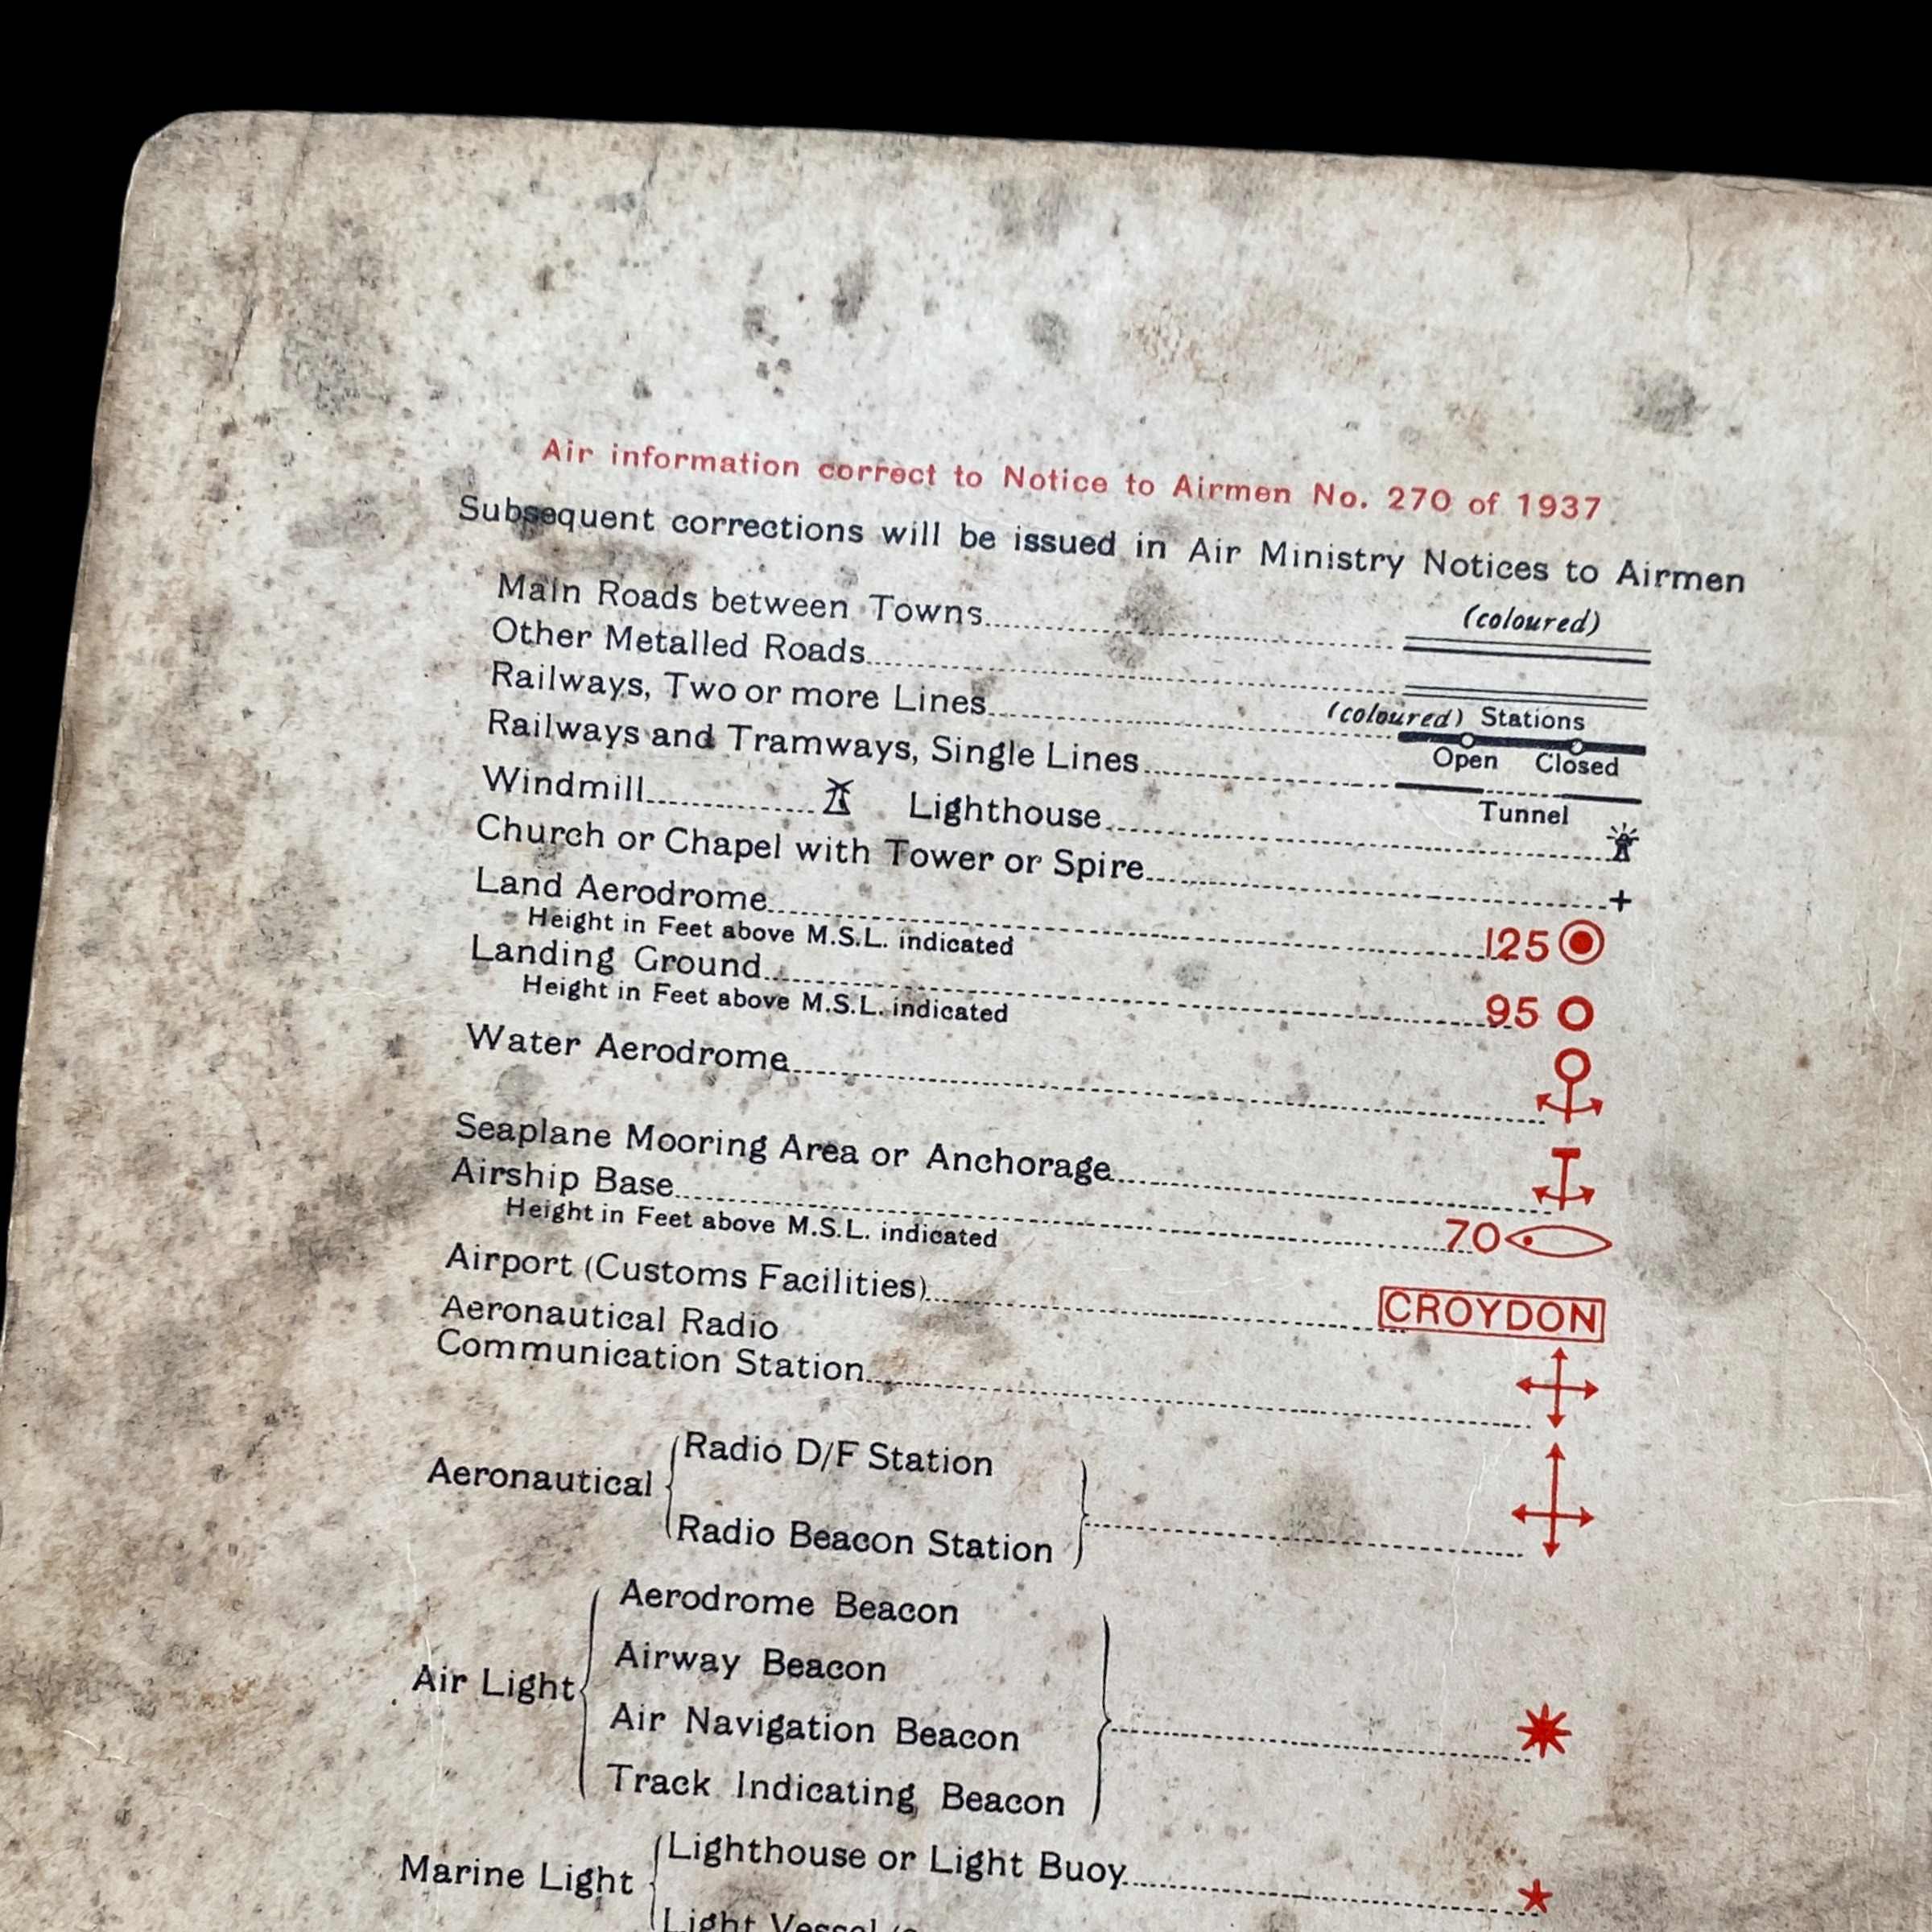 Air information correct to Notice to Airmen No. 270 of 1937
Subsequent corrections will be issued in Air Ministry Notices to Airmen
Main Roads between Towns (coloured)
Other Metalled Roads
Railways, Two or more Lines (coloured) Stations
Open Closed
Railways and Tramways, Single Lines
Tunnel
Windmill Lighthouse
Church or Chapel with Tower or Spire
Land Aerodrome 125
Height in Feet above M.S.L. indicated
Landing Ground 95
Height in Feet above M.S.L. indicated
Water Aerodrome
Seaplane Mooring Area or Anchorage
Airship Base 70
Height in Feet above M.S.L. indicated
Airport (Customs Facilities) CROYDON
Aeronautical Radio
Communication Station
Aeronautical
Radio D/F Station
Radio Beacon Station
Air Light
Aerodrome Beacon
Airway Beacon
Air Navigation Beacon
Track Indicating Beacon
Marine Light
Lighthouse or Light Buoy
Light Vessel